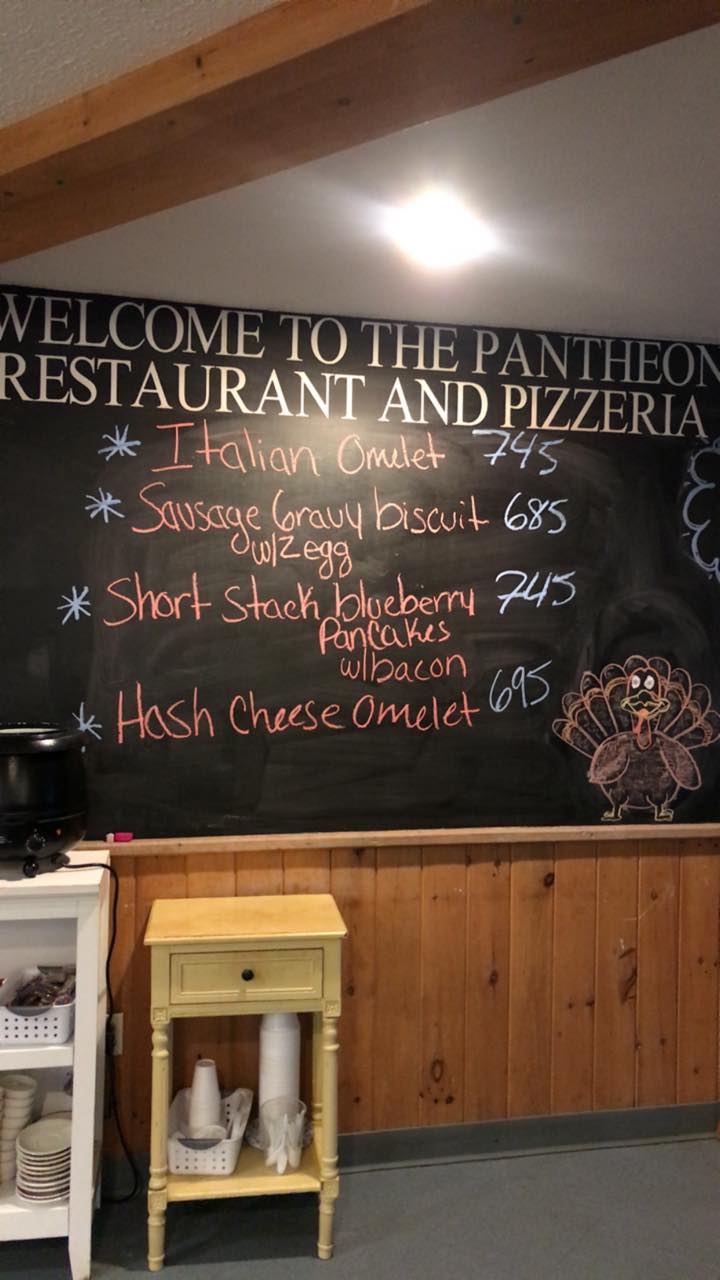 WELCOME TO THE PANTHEON
RESTAURANT AND PIZZERIA
* Italian Omelet 745
* Sausage Gravy biscuit 685
w/2 egg
* Short Stack blueberry 745
Pancakes
w/bacon
* Hash Cheese Omelet 695